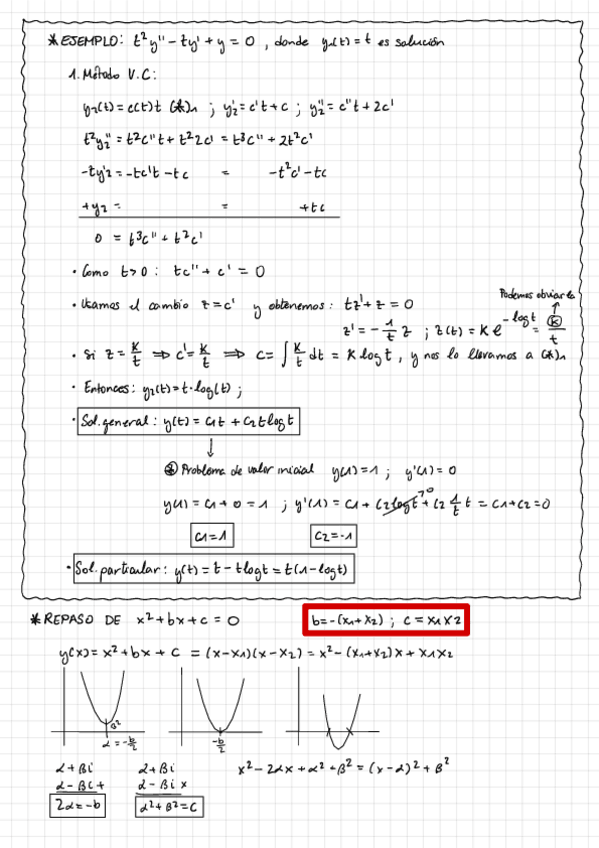 * EJEMPLO: t²y'' - ty' + y = 0 , donde y₁(t) = t es solución
1. Método V.C:
y₂(t) = c(t)t (*)₁ ; y₂' = c't + c ; y₂'' = c''t + 2c'
t²y₂'' = t²c''t + t²2c' = t³c'' + 2t²c'
-ty₂' = -tc't - tc = -t²c' - tc
+y₂ = = +tc
0 = t³c'' + t²c'
• Como t>0 : tc'' + c' = 0
Podemos obviarla
• Usamos el cambio z = c' y obtenemos: tz' + z = 0
z' = -1/t z ; z(t) = K e^(-log t) = K/t
• Si z = K/t ⇒ c' = K/t ⇒ c = ∫ K/t dt = K log t , y nos lo llevamos a (*)₁
• Entonces: y₂(t) = t·log(t) ;
• Sol. general : y(t) = c₁t + c₂t log t
↓
* Problema de valor inicial y(1) = 1 ; y'(1) = 0
y(1) = c₁ + 0 = 1 ; y'(1) = c₁ + c₂ log t →0 + c₂ 1/t t = c₁ + c₂ = 0
c₁ = 1 c₂ = -1
• Sol. particular : y(t) = t - t log t = t(1 - log t)
* REPASO DE x² + bx + c = 0 b = -(x₁ + x₂) ; c = x₁x₂
y(x) = x² + bx + c = (x - x₁)(x - x₂) = x² - (x₁ + x₂)x + x₁x₂
β²
α = -b/2 -b/2
α + βi α + βi x² - 2αx + α² + β² = (x - α)² + β²
α - βi + α - βi x
2α = -b α² + β² = c